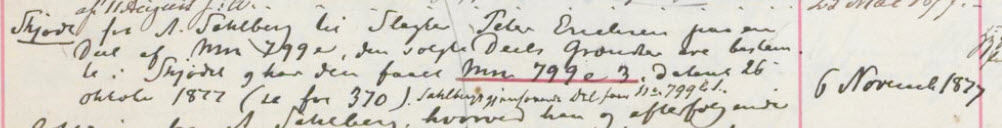 af 11 August
Skjøde fra A. Sahlberg til Slagter Peter Erichsen paa en
Deel af Mnr 799e, den solgte Deels Grændser ere bestem
te i Skjødet og har den faaet Mnr 799e 3. Dateret 26
oktober 1877 (se fol 370). Sahlbergs gjenværende Del fam 799e 1.
6 November 1877
A. Sahlberg, hvorved han og efterfølgende